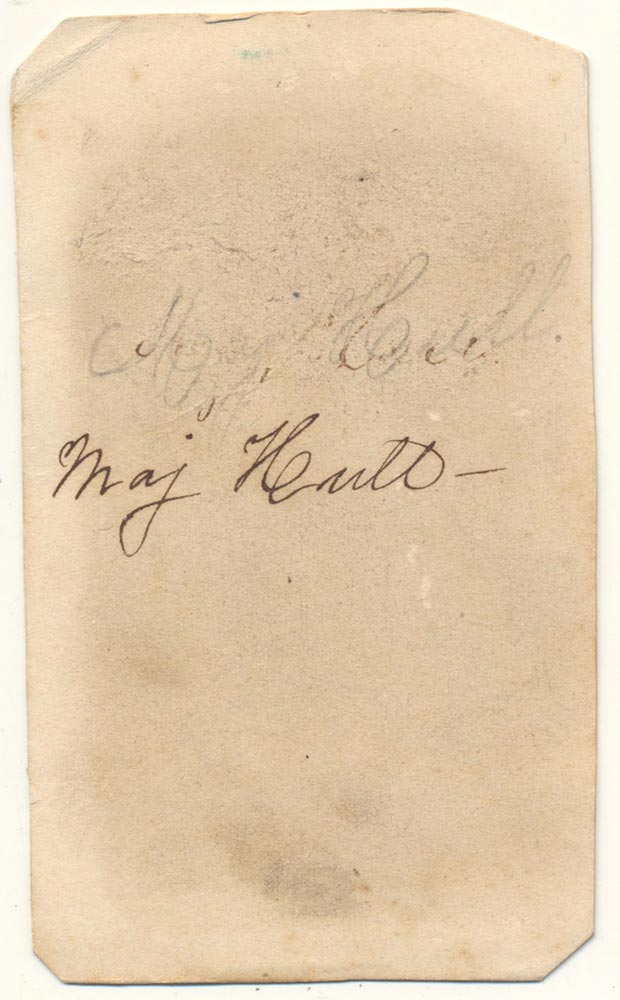 Maj Hull.
Maj Hull —